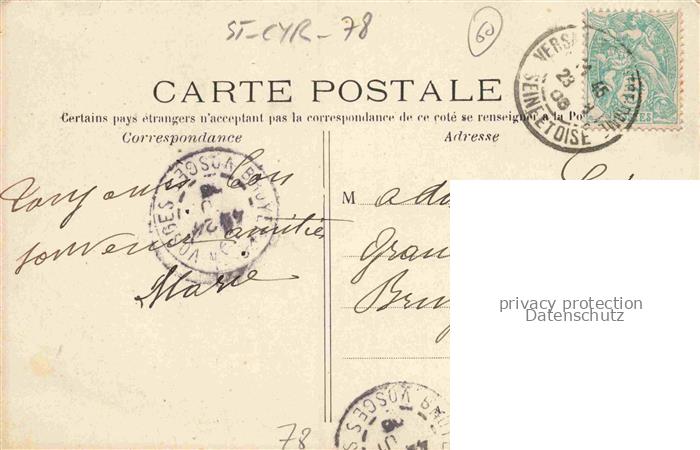 ST-CYR-78
60
CARTE POSTALE
Certains pays étrangers n'acceptant pas la correspondance de ce coté se renseigner a la Po
Correspondance
Adresse
VERSA
23
SEINE ET OISE
BRUYE VOSGES
Toujours bon
souvenir amitiés
Marie
M ada
Gran
Bruy
privacy protection
Datenschutz
BRUYE
VOSGES
78